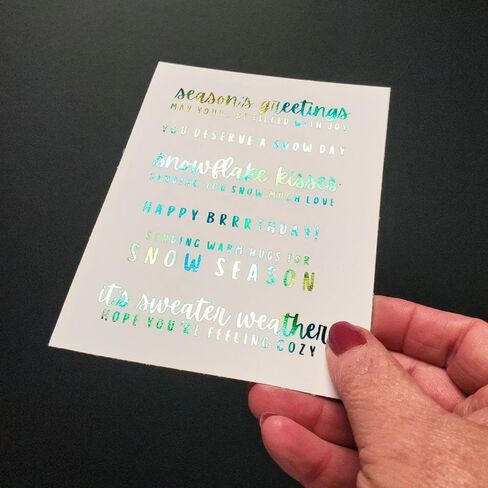 season's greetings
MAY YOUR BE FILLED WITH JOY
YOU DESERVE A SNOW DAY
snowflake kisses
SENDING YOU SNOW MUCH LOVE
HAPPY BRRRTHDAY!
SENDING WARM HUGS FOR
SNOW SEASON
it's sweater weather
HOPE YOU'RE FEELING COZY